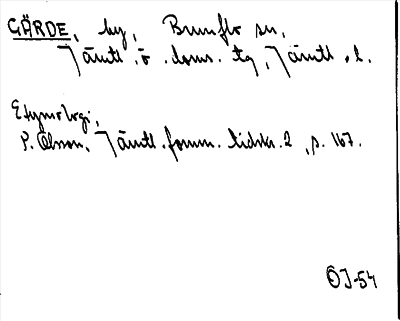 GÄRDE, by, Brunflo sn,
Jämtl. ö. doms. tg, Jämtl. l.
Etymologi,
P. Olsson, Jämtl. fornm. tidskr. 2, s. 167.
ÖJ-54